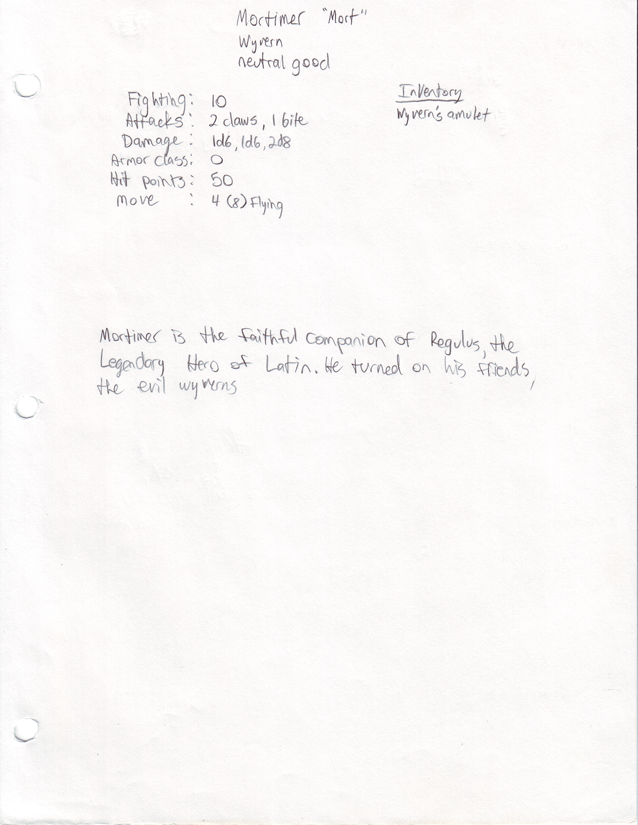 Mortimer "Mort"
Wyvern
neutral good
Fighting: 10
Attacks: 2 claws, 1 bite
Damage: 1d6, 1d6, 2d8
Armor class: 0
Hit points: 50
Move : 4 (8) Flying
Inventory
Wyvern's amulet
Mortimer is the faithful companion of Regulus, the
Legendary Hero of Latin. He turned on his friends,
the evil wyverns